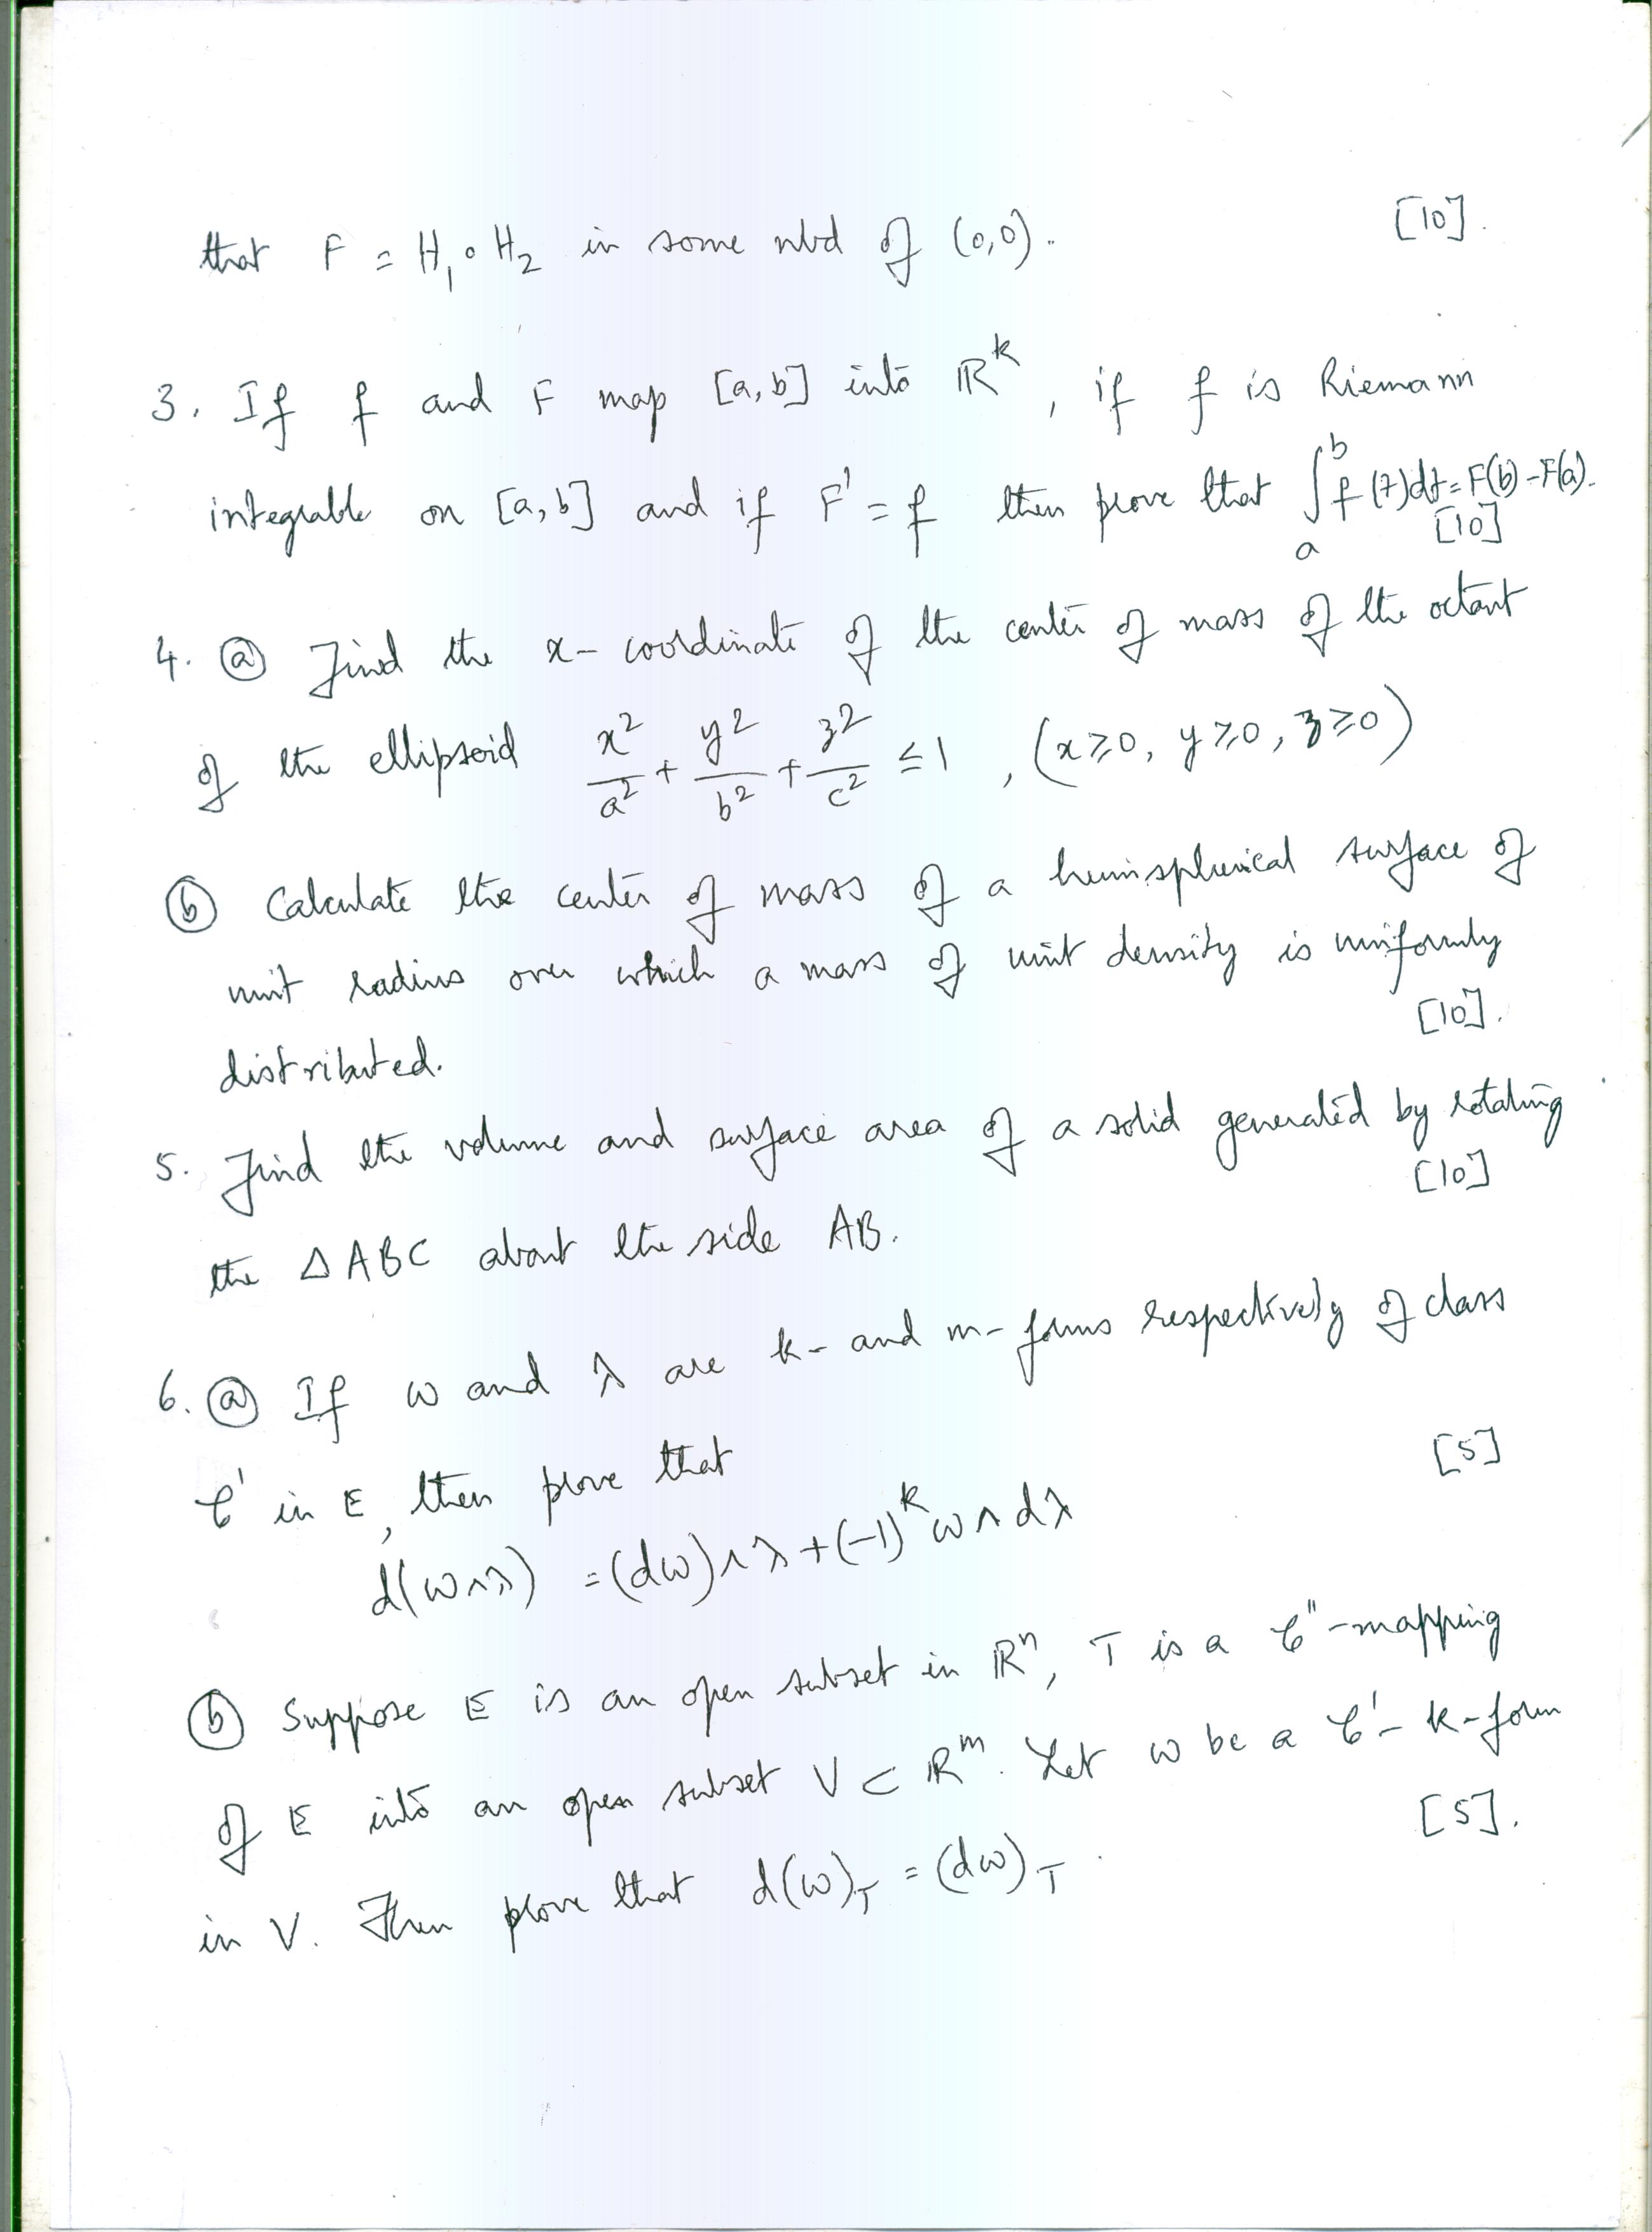 that F = H₁ ∘ H₂ in some nbd of (0,0). [10].
3. If f and F map [a,b] into ℝᵏ, if f is Riemann
integrable on [a,b] and if F' = f then prove that ∫ₐᵇ f(t)dt = F(b) - F(a).
[10]
4. ⓐ Find the x-coordinate of the center of mass of the octant
of the ellipsoid x²/a² + y²/b² + z²/c² ≤ 1, (x≥0, y≥0, z≥0)
ⓑ Calculate the center of mass of a hemispherical surface of
unit radius over which a mass of unit density is uniformly
distributed. [10].
5. Find the volume and surface area of a solid generated by rotating
the △ABC about the side AB. [10]
6. ⓐ If ω and λ are k- and m-forms respectively of class
𝒞' in E, then prove that [5]
d(ω∧λ) = (dω)∧λ + (-1)ᵏ ω∧dλ
ⓑ Suppose E is an open subset in ℝⁿ, T is a 𝒞''-mapping
of E into an open subset V ⊂ ℝᵐ. Let ω be a 𝒞'- k-form
in V. Then prove that d(ω)_T = (dω)_T. [5].